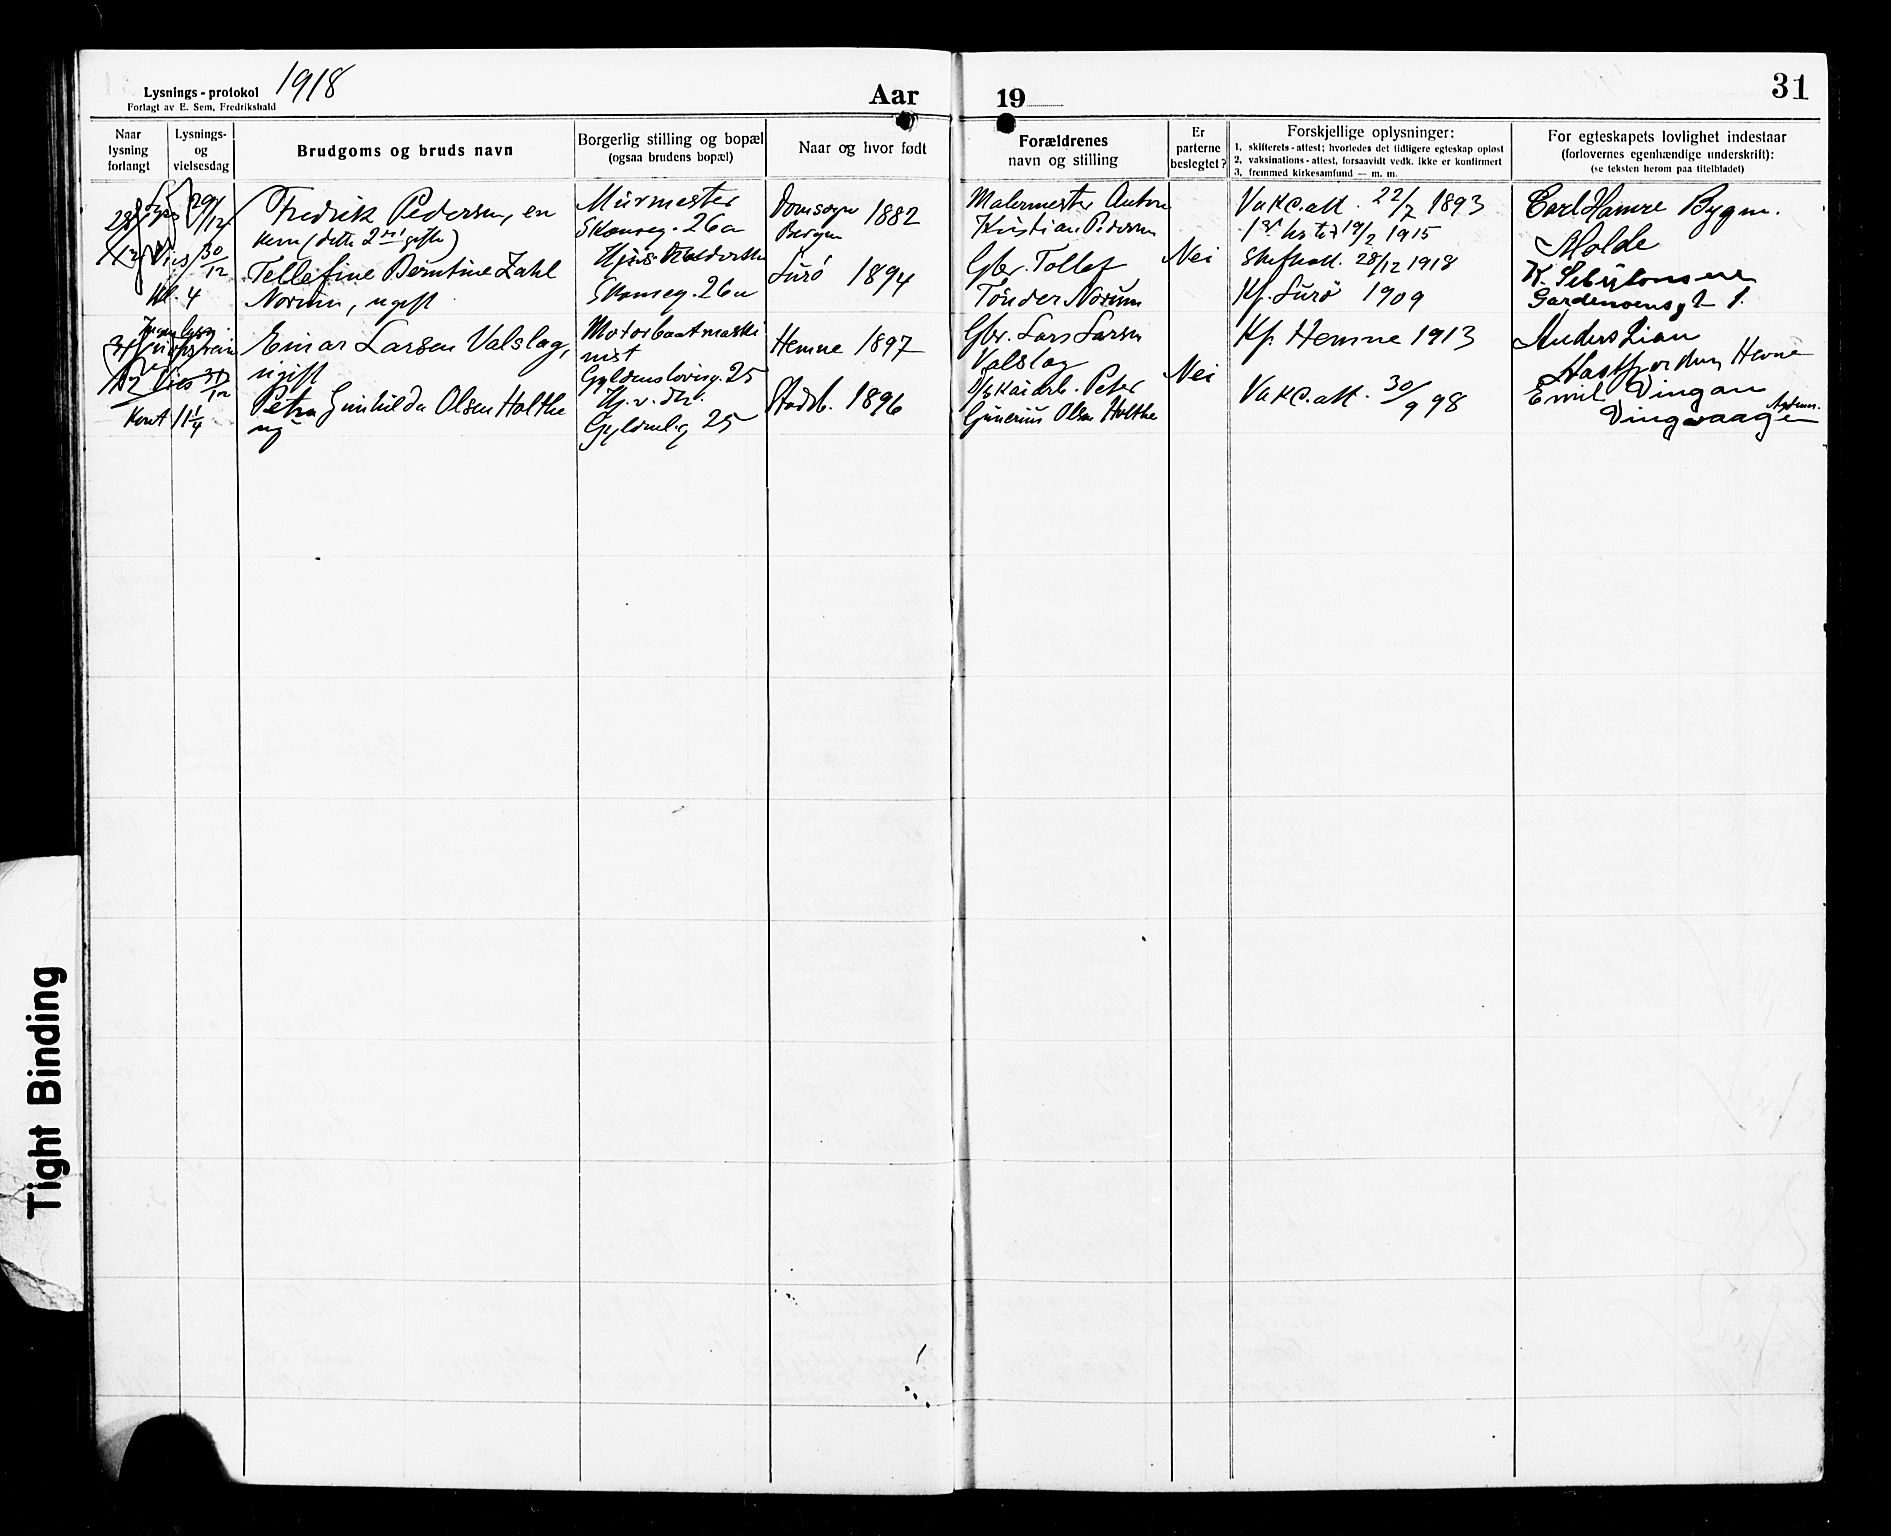 Lysnings-protokol 1918
Forlagt av E. Sem, Fredrikshald
Aar
19
31
Naar lysning forlangt
Lysnings- og vielsesdag
Brudgoms og bruds navn
Borgerlig stilling og bopæl
(ogsaa brudens bopæl)
Naar og hvor født
Forældrenes
navn og stilling
Er parterne beslegtet?
Forskjellige oplysninger:
1, skifterets-attest; hvorledes det tidligere egteskap opløst
2, vaksinations-attest, forsaavidt vedk. ikke er konfirmert
3, fremmed kirkesamfund — m. m.
For egteskapets lovlighet indestaar
(forlovernes egenhændige underskrift):
(se teksten herom paa titelbladet)
28/12
Lyss 29/12
Vies 30/12
Kl. 4
Fredrik Pedersen, en
kem (dette 2det gifte)
Tellefine Berntine Zahl
Norum, ugift
Murmester
Skanseg. 26a
Skanseg. 26a
Domsogn
Bergen 1882
Lurö 1894
Malermester Anton
Kristian Pedersen
Gbr. Tollef
Tönder Norum
Nei
Vakc.att. 22/7 1893
19/2 1915
Skifteatt. 28/12 1918
Kf. Lurö 1909
Carl Hamre Bygm.
Molde
31/12
Vies 31/12
Kont 11 1/4
Einar Larsen Valslag,
ugift
Petra Gunhilda Olsen Holthe
ug
Motorbaatmaski
nist
Gyldenlövesg. 25
Hj. v. dh.
Gyldenl.g 25
Hemne 1897
Stadsb. 1896
Gbr. Lars Larsen
Valslag
Peter
Gunerius Olsen Holthe
Nei
Kf. Hemne 1913
Vakc.att. 30/9 98
Anders Lian
Hevne
Emil Vingan
Vingvaagen
Tight Binding